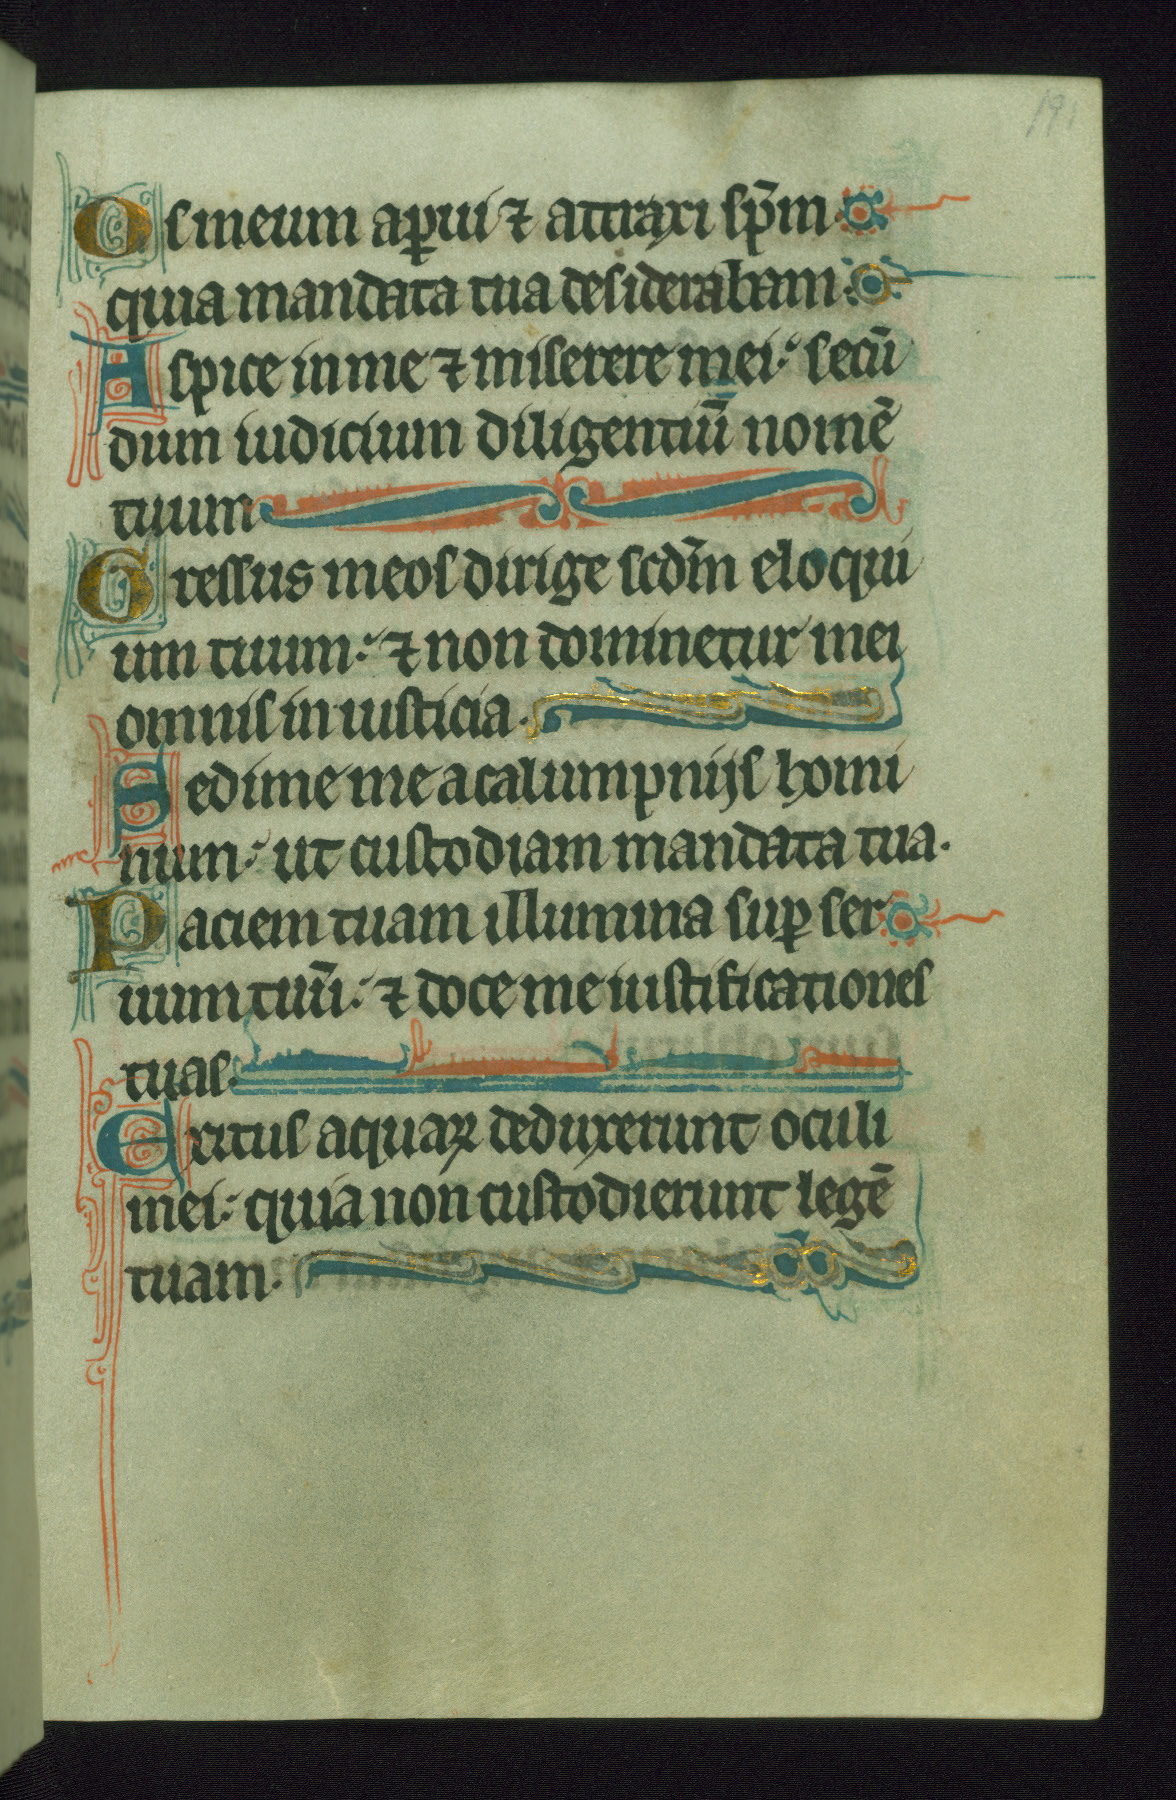 191
Os meum aꝑui ⁊ attraxi sp̄m
quia mandata tua desiderabam:
Aspice in me ⁊ miserere mei: secū
dum iudicium diligentiū nomē
tuum
Gressus meos dirige scd̄m eloqui
um tuum: ⁊ non dominetur mei
omnis iniusticia.
Sedime me a calumpnijs homi
num: ut custodiam mandata tua.
Paciem tuam illumina suꝑ ser
uum tuū: ⁊ doce me iustificationes
tuas.
Exitus aquaꝝ deduxerunt oculi
mei: quia non custodierunt legē
tuam.